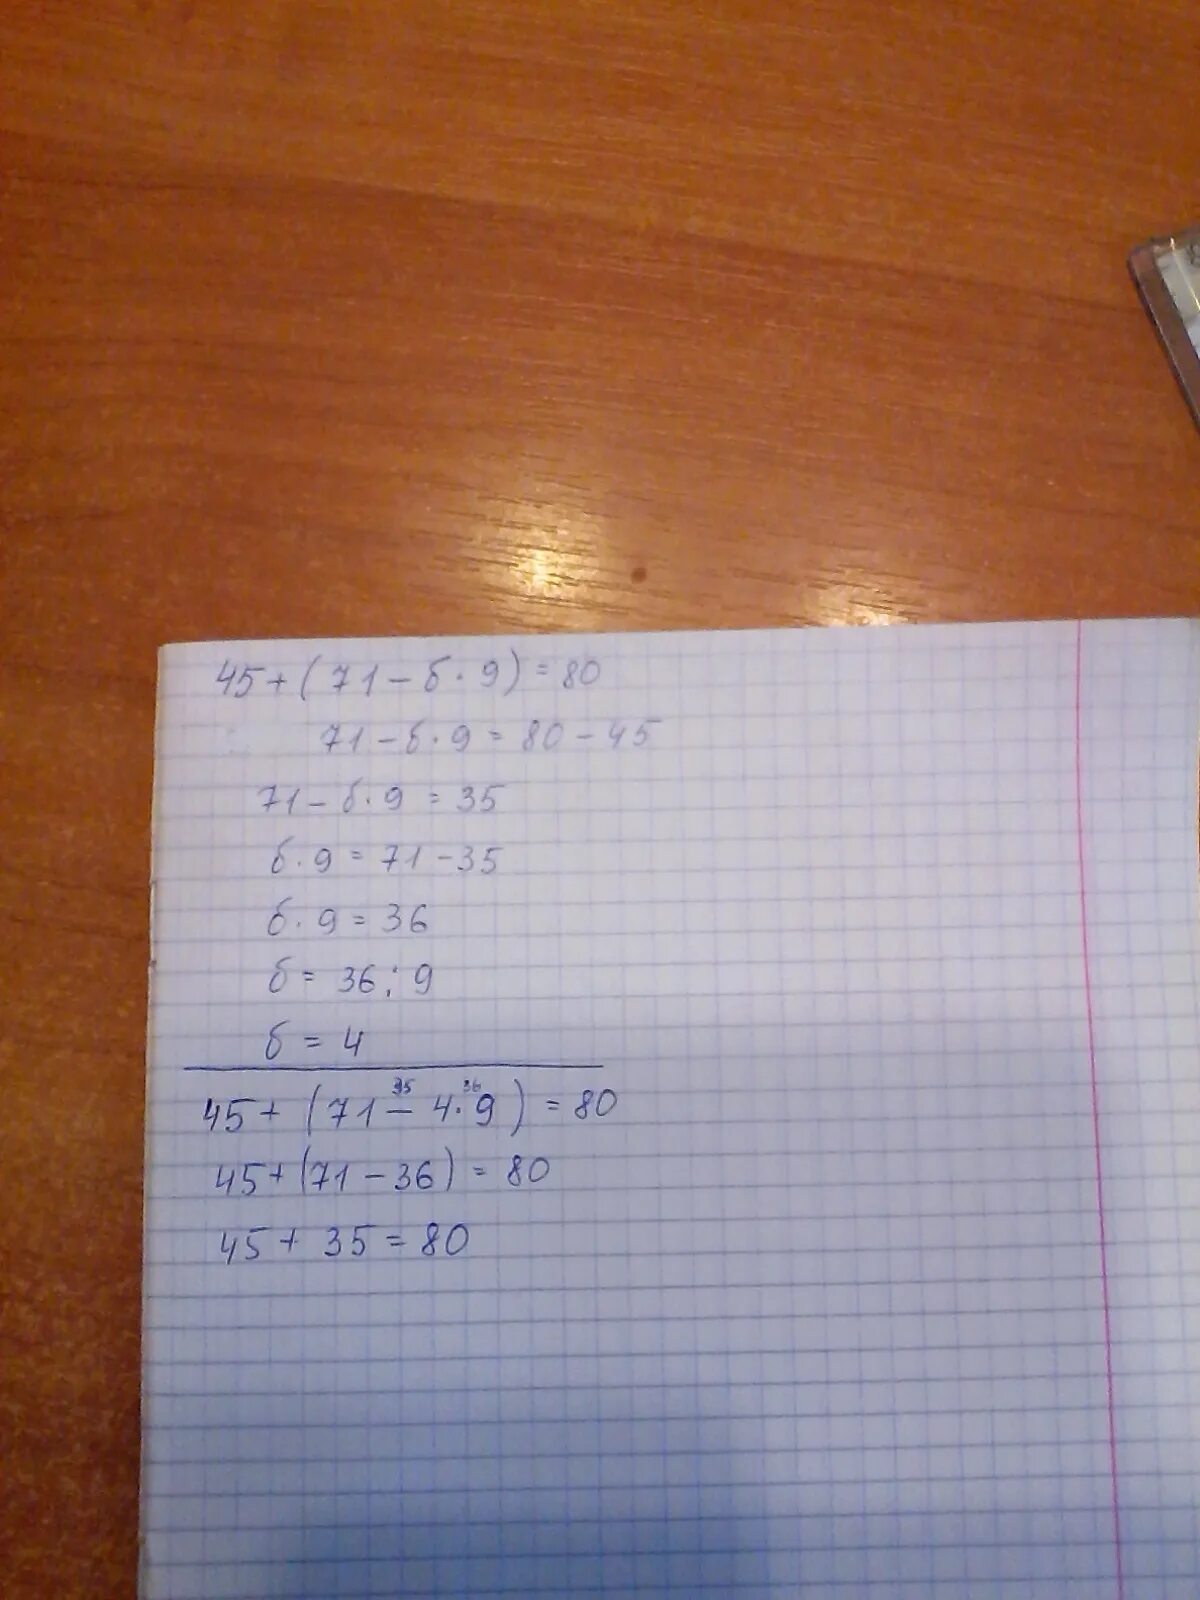 45+(71-б·9)=80
71-б·9=80-45
71-б·9=35
б·9=71-35
б·9=36
б=36:9
б=4
35 36
45+(71-4·9)=80
45+(71-36)=80
45+35=80